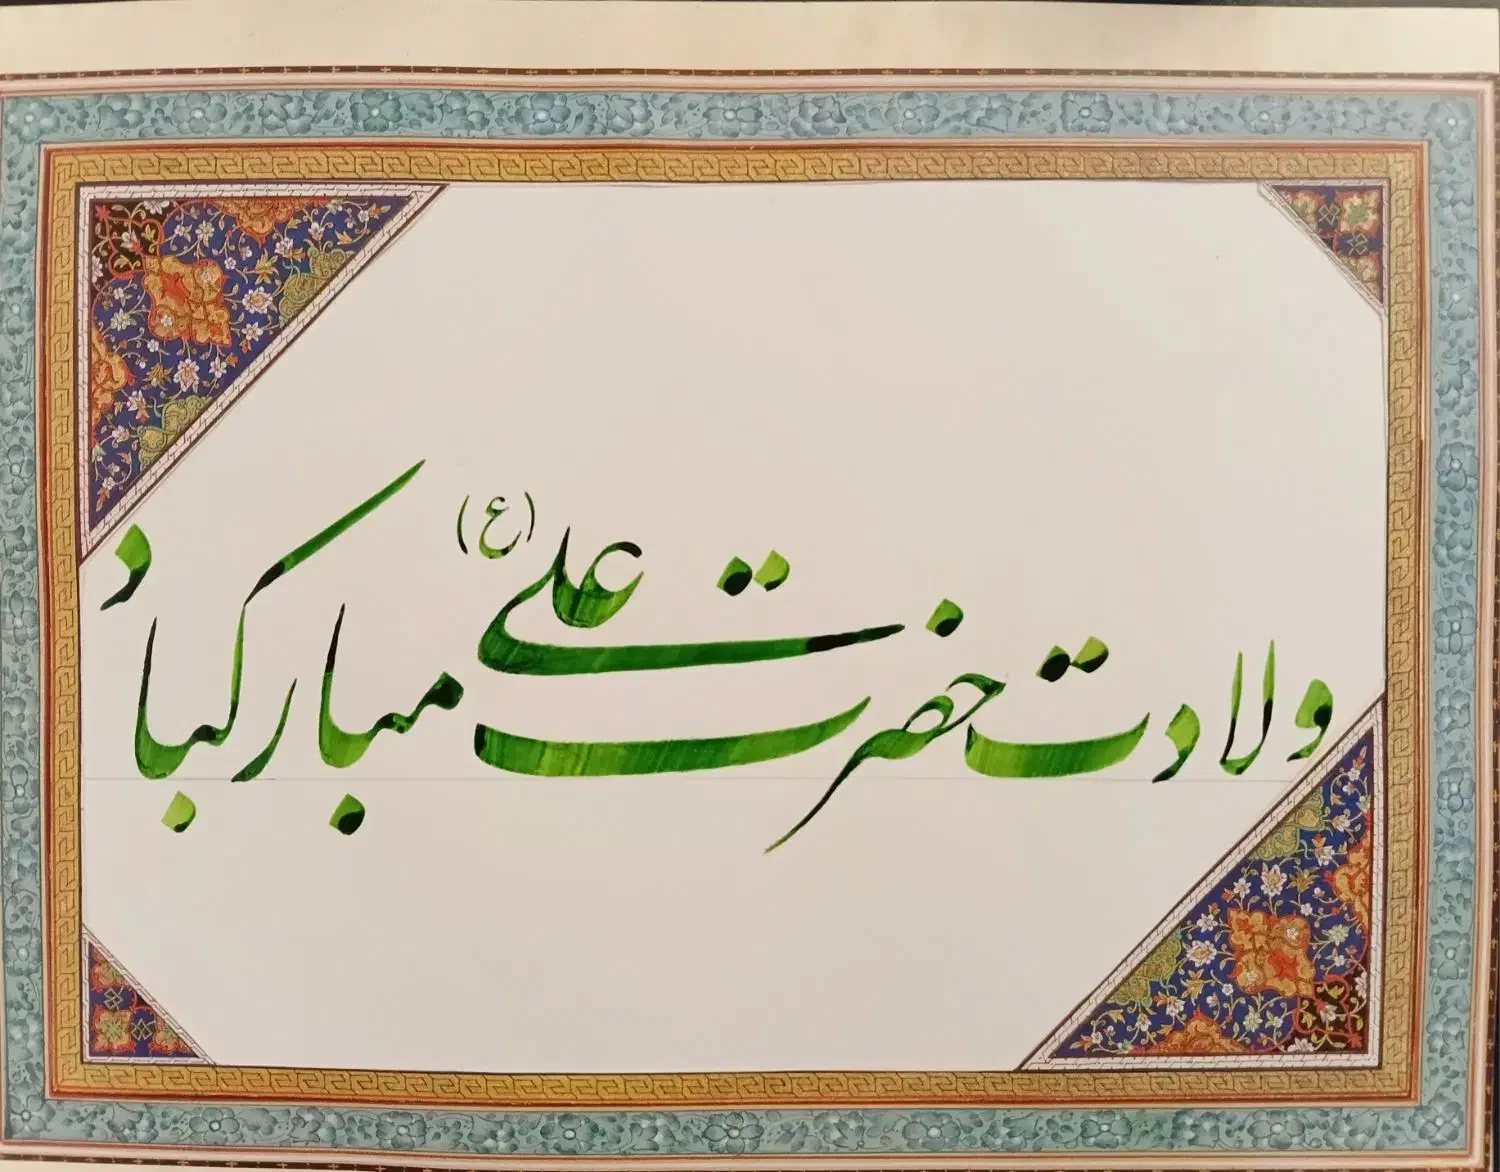 ولادت حضرت علی (ع) مبارکباد